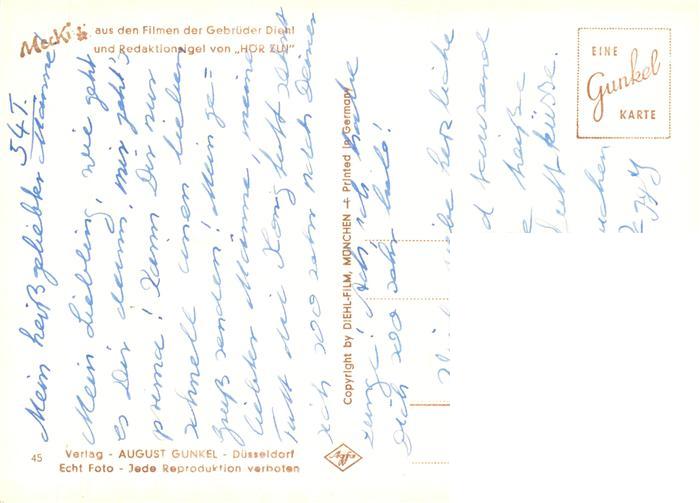 Mecki
aus den Filmen der Gebrüder Diehl
und Redaktionsigel von „HÖR ZU!"
EINE
Gunkel
KARTE
54 T.
Mein heißgeliebter Manne
Mein Liebling, wie geht
es Dir denn, mir geht's
prima! Kann Dir nur
schnell einen lieben
Gruß senden! Mein ge=
liebter Manne, meine
sich soo sehr nach Deiner
Dich soo sehr lieb!
liebe herzliche
d tausend
heiße
küsse.
Copyright by DIEHL-FILM, MÜNCHEN + Printed in Germany
45
Verlag - AUGUST GUNKEL - Düsseldorf
Echt Foto - Jede Reproduktion verboten
Agfa